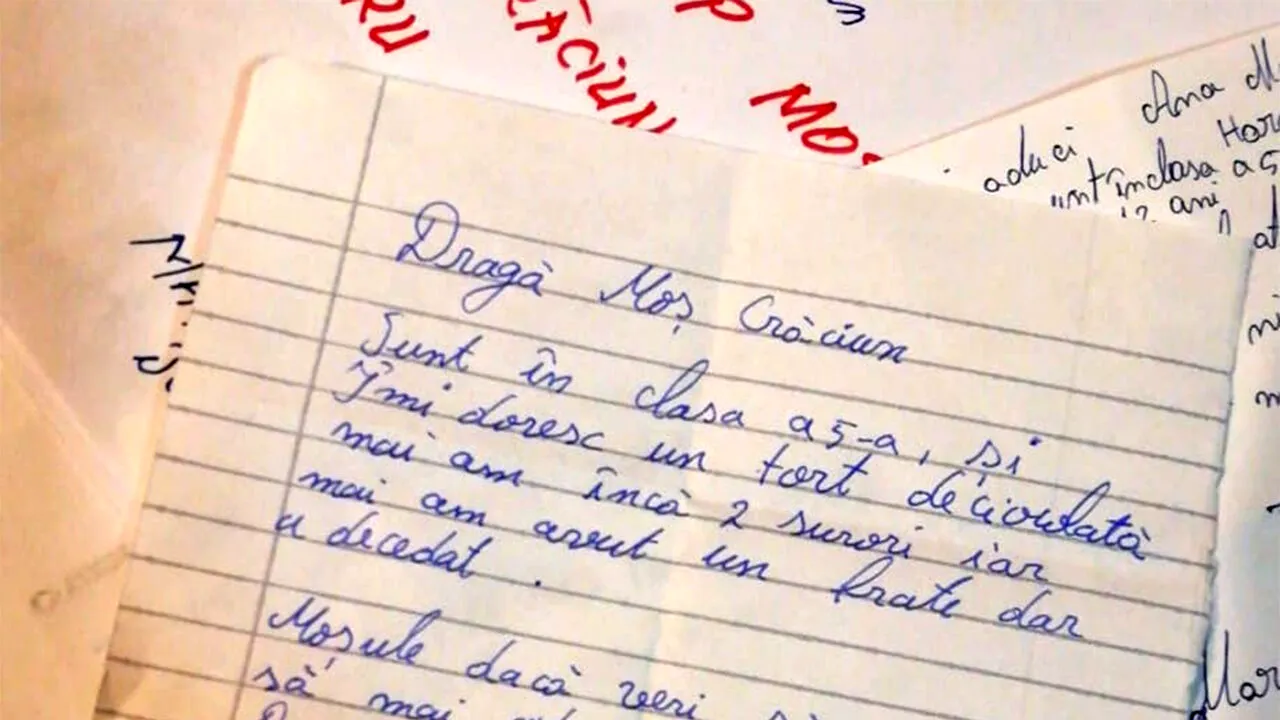 RU
RĂCIUN
P
MOȘ
Ana M
aduci
Hor
unt în clasa a 5
12 ani
Dragă Moș Crăciun
Sunt în clasa a 5-a, și
Îmi doresc un tort
mai am încă 2 surori iar
mai am avut un frate dar
a decedat .
Moșule dacă vrei
să mai
Mar